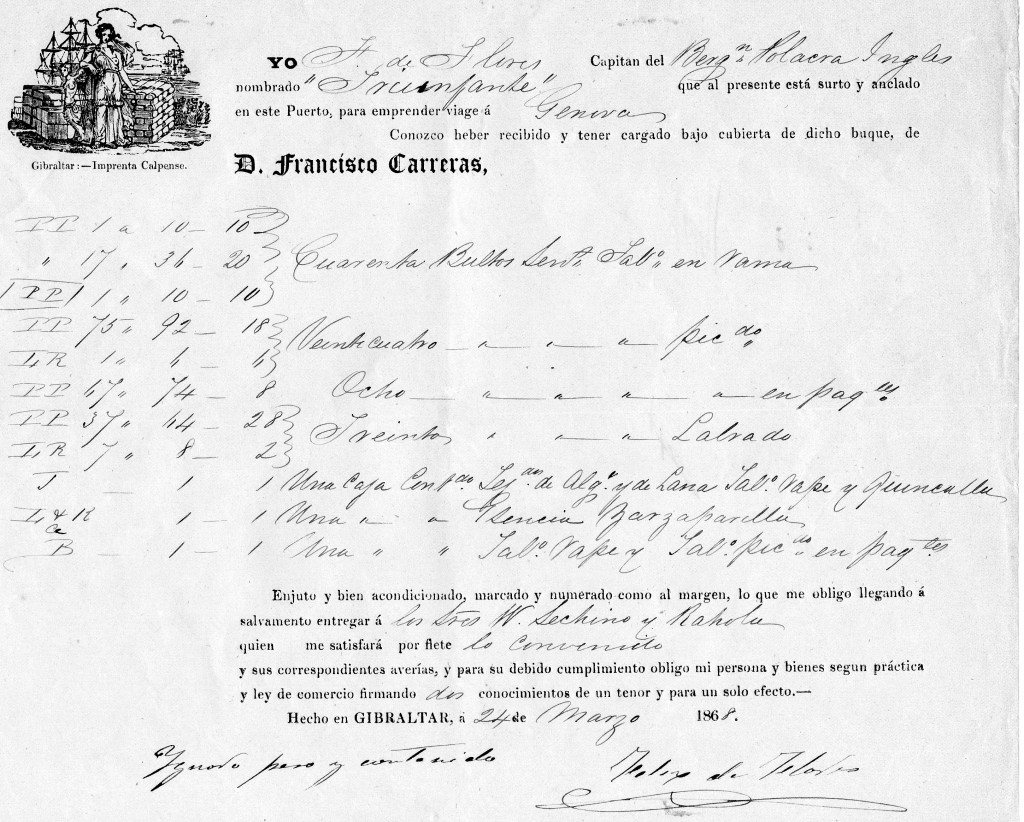 YO F. de Flores Capitan del Bergn. Polacra Ingles
nombrado "Triunfante" que al presente está surto y anclado
en este Puerto, para emprender viage á Genova
Conozco heber recibido y tener cargado bajo cubierta de dicho buque, de
Gibraltar:—Imprenta Calpense.
D. Francisco Carreras,
PP 1 a 10 — 10
" 17 " 36 — 20 Cuarenta Bultos Tabo. en rama
|PP| 1 " 10 — 10
PP 75 " 92 — 18 Veinticuatro — " — " — " picdo.
LR 1 " 6 — 6
PP 67 " 74 — 8 Ocho — " — " — " — en paqtes
PP 37 " 64 — 28 Treinta " — " — " Labrado
LR 7 " 8 — 2
J — 1 1 Una Caja Contdo. Tejdos. de Algn. y de Lana Tabo. rape y Quincalla
L & Ca R 1 — 1 Una " " Esencia Zarzaparilla
B — 1 — 1 Una " " Tabo. rape y Tabo. picdo. en paqtes
Enjuto y bien acondicionado, marcado y numerado como al margen, lo que me obligo llegando á
salvamento entregar á los Sres W. Sechino y Rahola
quien me satisfará por flete lo convenido
y sus correspondientes averías, y para su debido cumplimiento obligo mi persona y bienes segun práctica
y ley de comercio firmando dos conocimientos de un tenor y para un solo efecto.—
Hecho en GIBRALTAR, á 24 de Marzo 1868.
Ygnoro peso y contenido
Felix de Flores